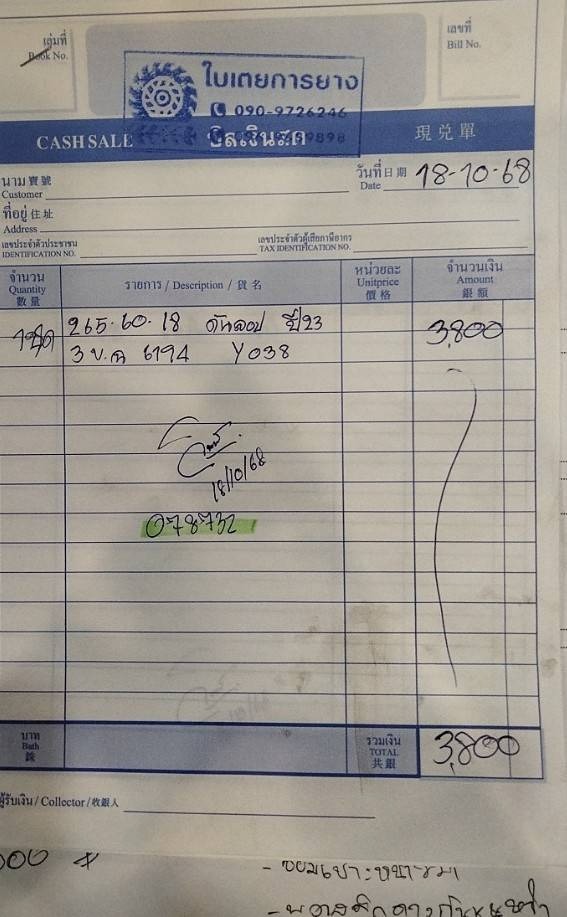 เล่มที่
Book No.
เลขที่
Bill No.
ใบเตยการยาง
090-9726246
9898
CASH SALE บิลเงินสด 現兑單
นาม 寶號
Customer
วันที่ 日期
Date 18-10-68
ที่อยู่ 住址
Address
เลขประจำตัวประชาชน
IDENTIFICATION NO.
เลขประจำตัวผู้เสียภาษีอากร
TAX IDENTIFICATION NO.
จำนวน
Quantity
數量
รายการ / Description / 貨名
หน่วยละ
Unitprice
價格
จำนวนเงิน
Amount
銀額
265-60-18 ดันลอป ปี23 3,800
6194 Y038
18/10/68
078732
บาท
Bath
銖
รวมเงิน
TOTAL
共銀
3,800
ผู้รับเงิน / Collector / 收銀人